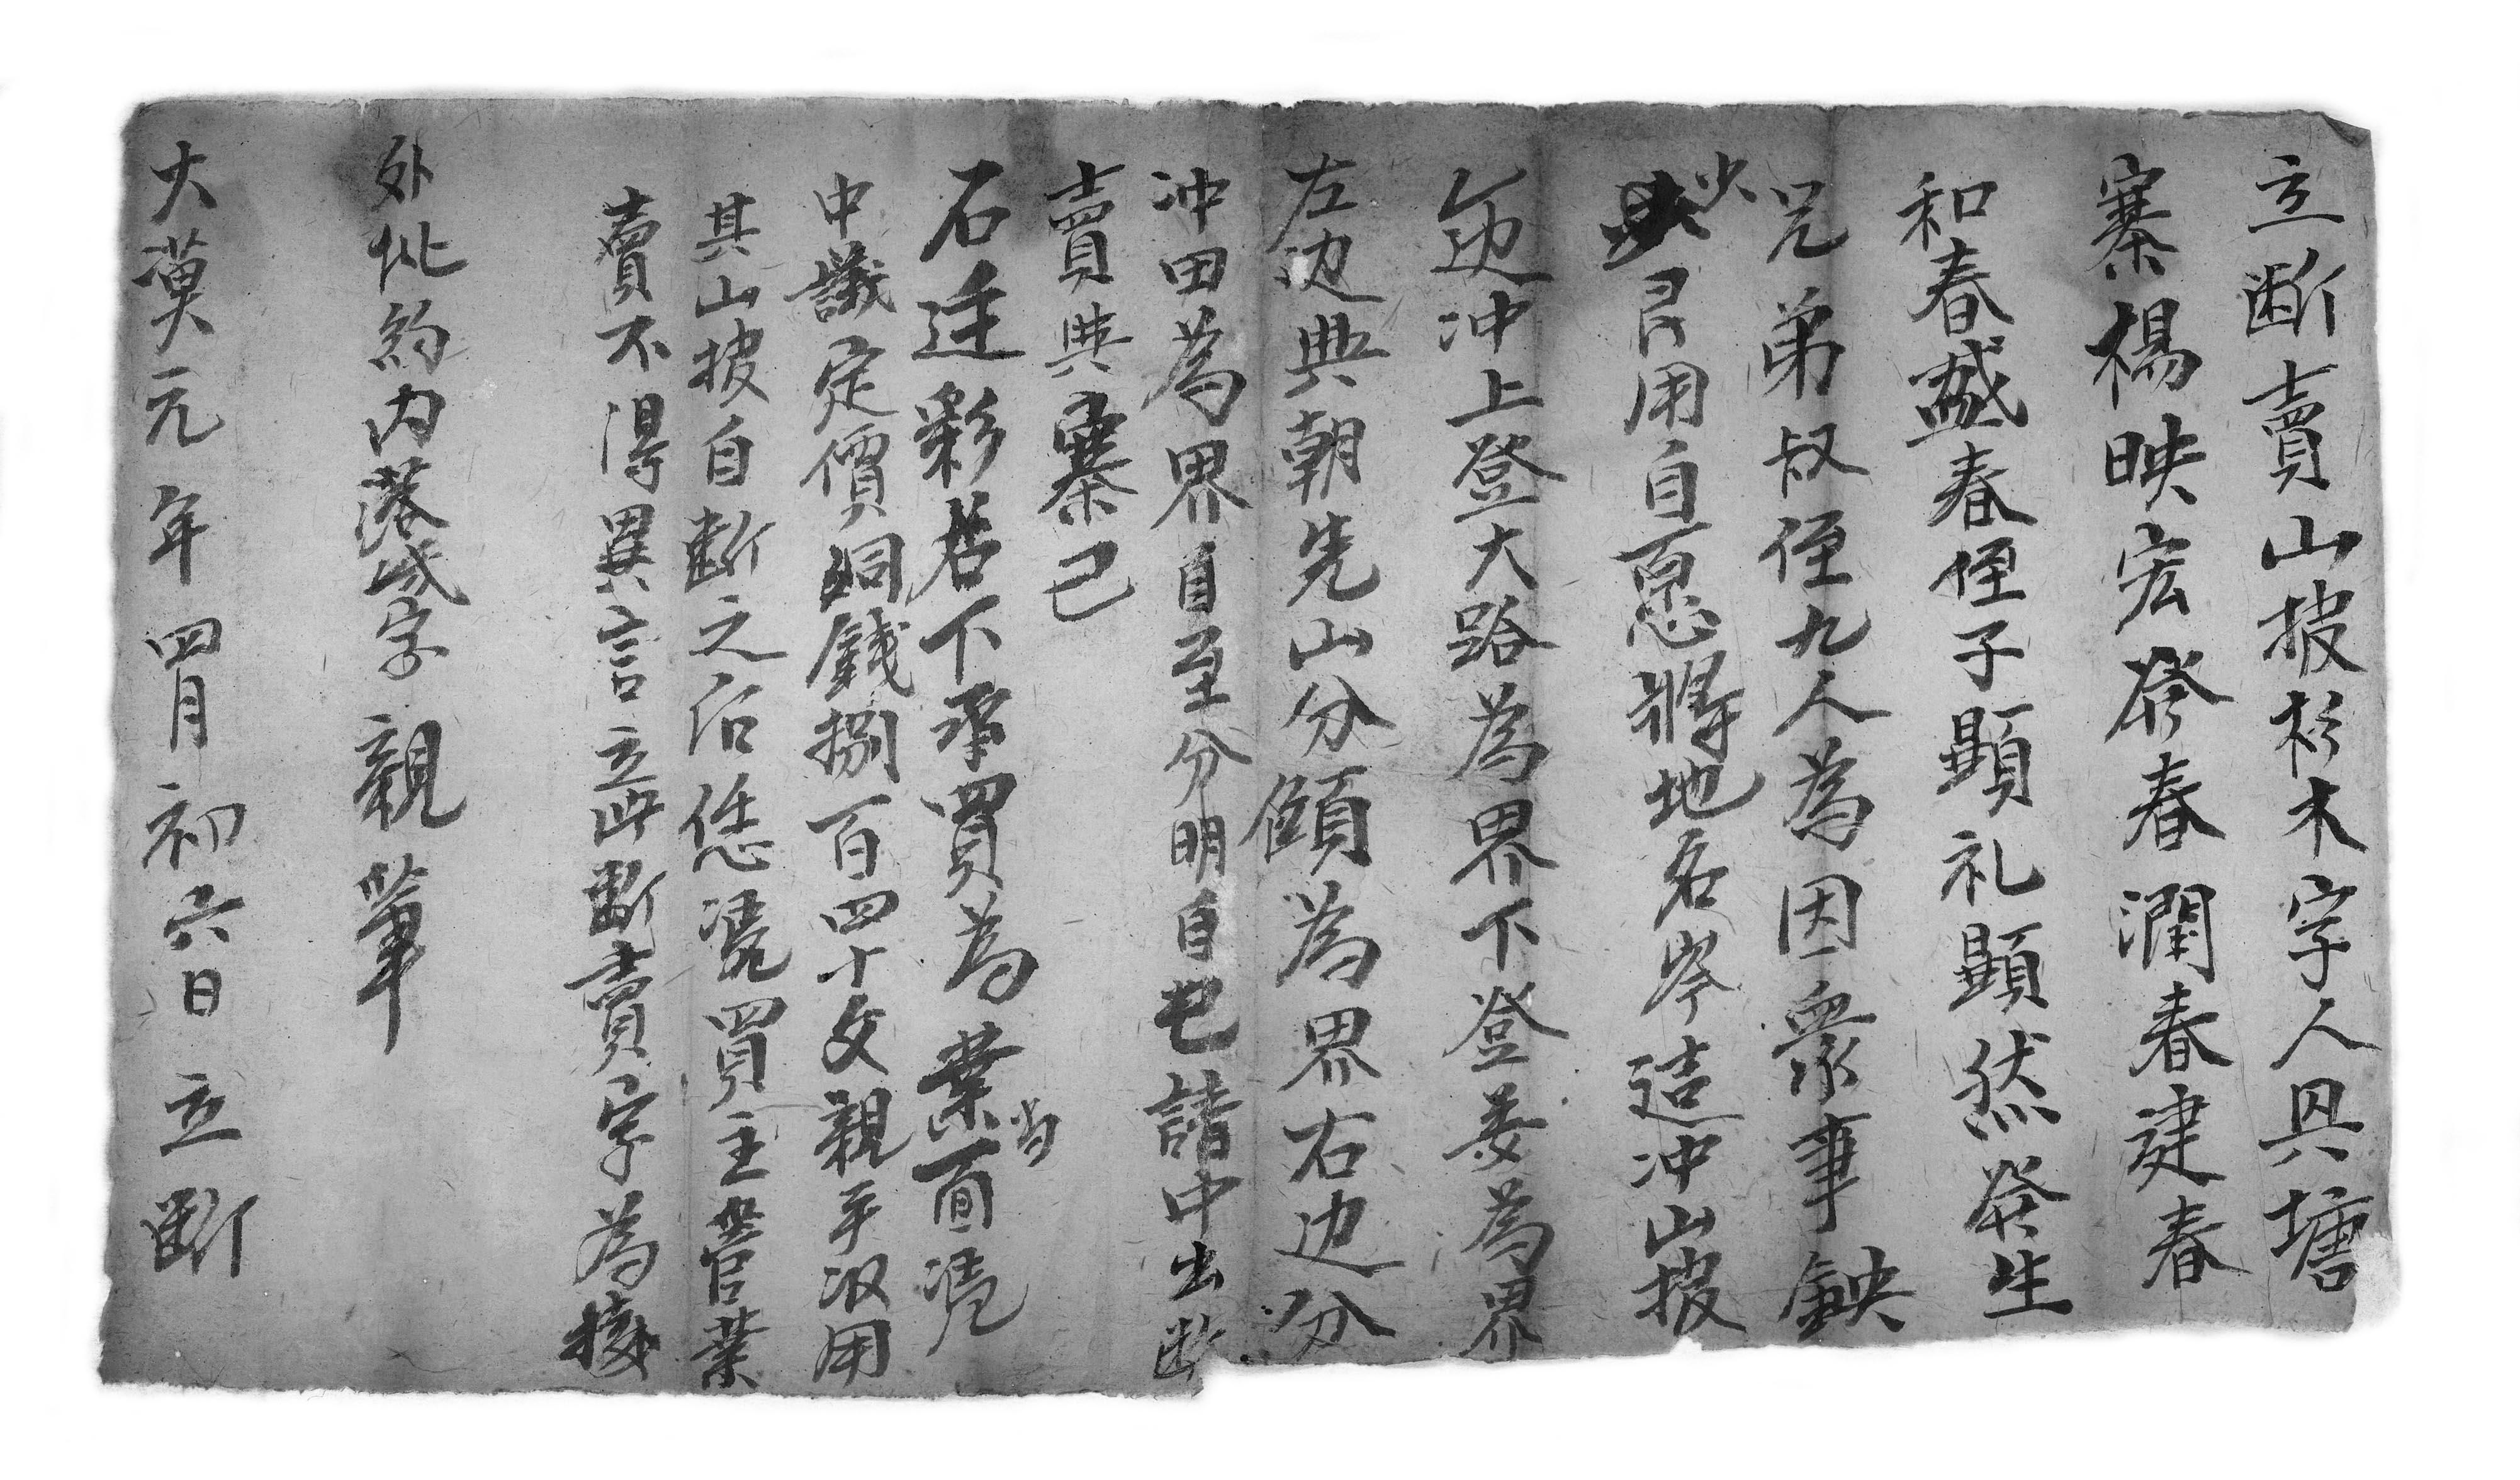 立断賣山披杉木字人具塘
寨楊映宏發春潤春建春
和春盛春侄子顕礼顕然癸生
兄弟叔侄九人為因衆事鈌
少用自愿將地名岑迼冲山披
乙边冲上登大路為界下登娄為界
左边典朝先山分傾為界右边分
冲田為界自至分明自己請中出断
賣與寨己
石廷彩名下承買為業当面凴
中議定價銅錢捌百四十文親手汲用
其山披自断之后恁凴買主管業
賣不得異言立此断賣字為據
外批約内落字親筆
大漢元年四月初六日立断